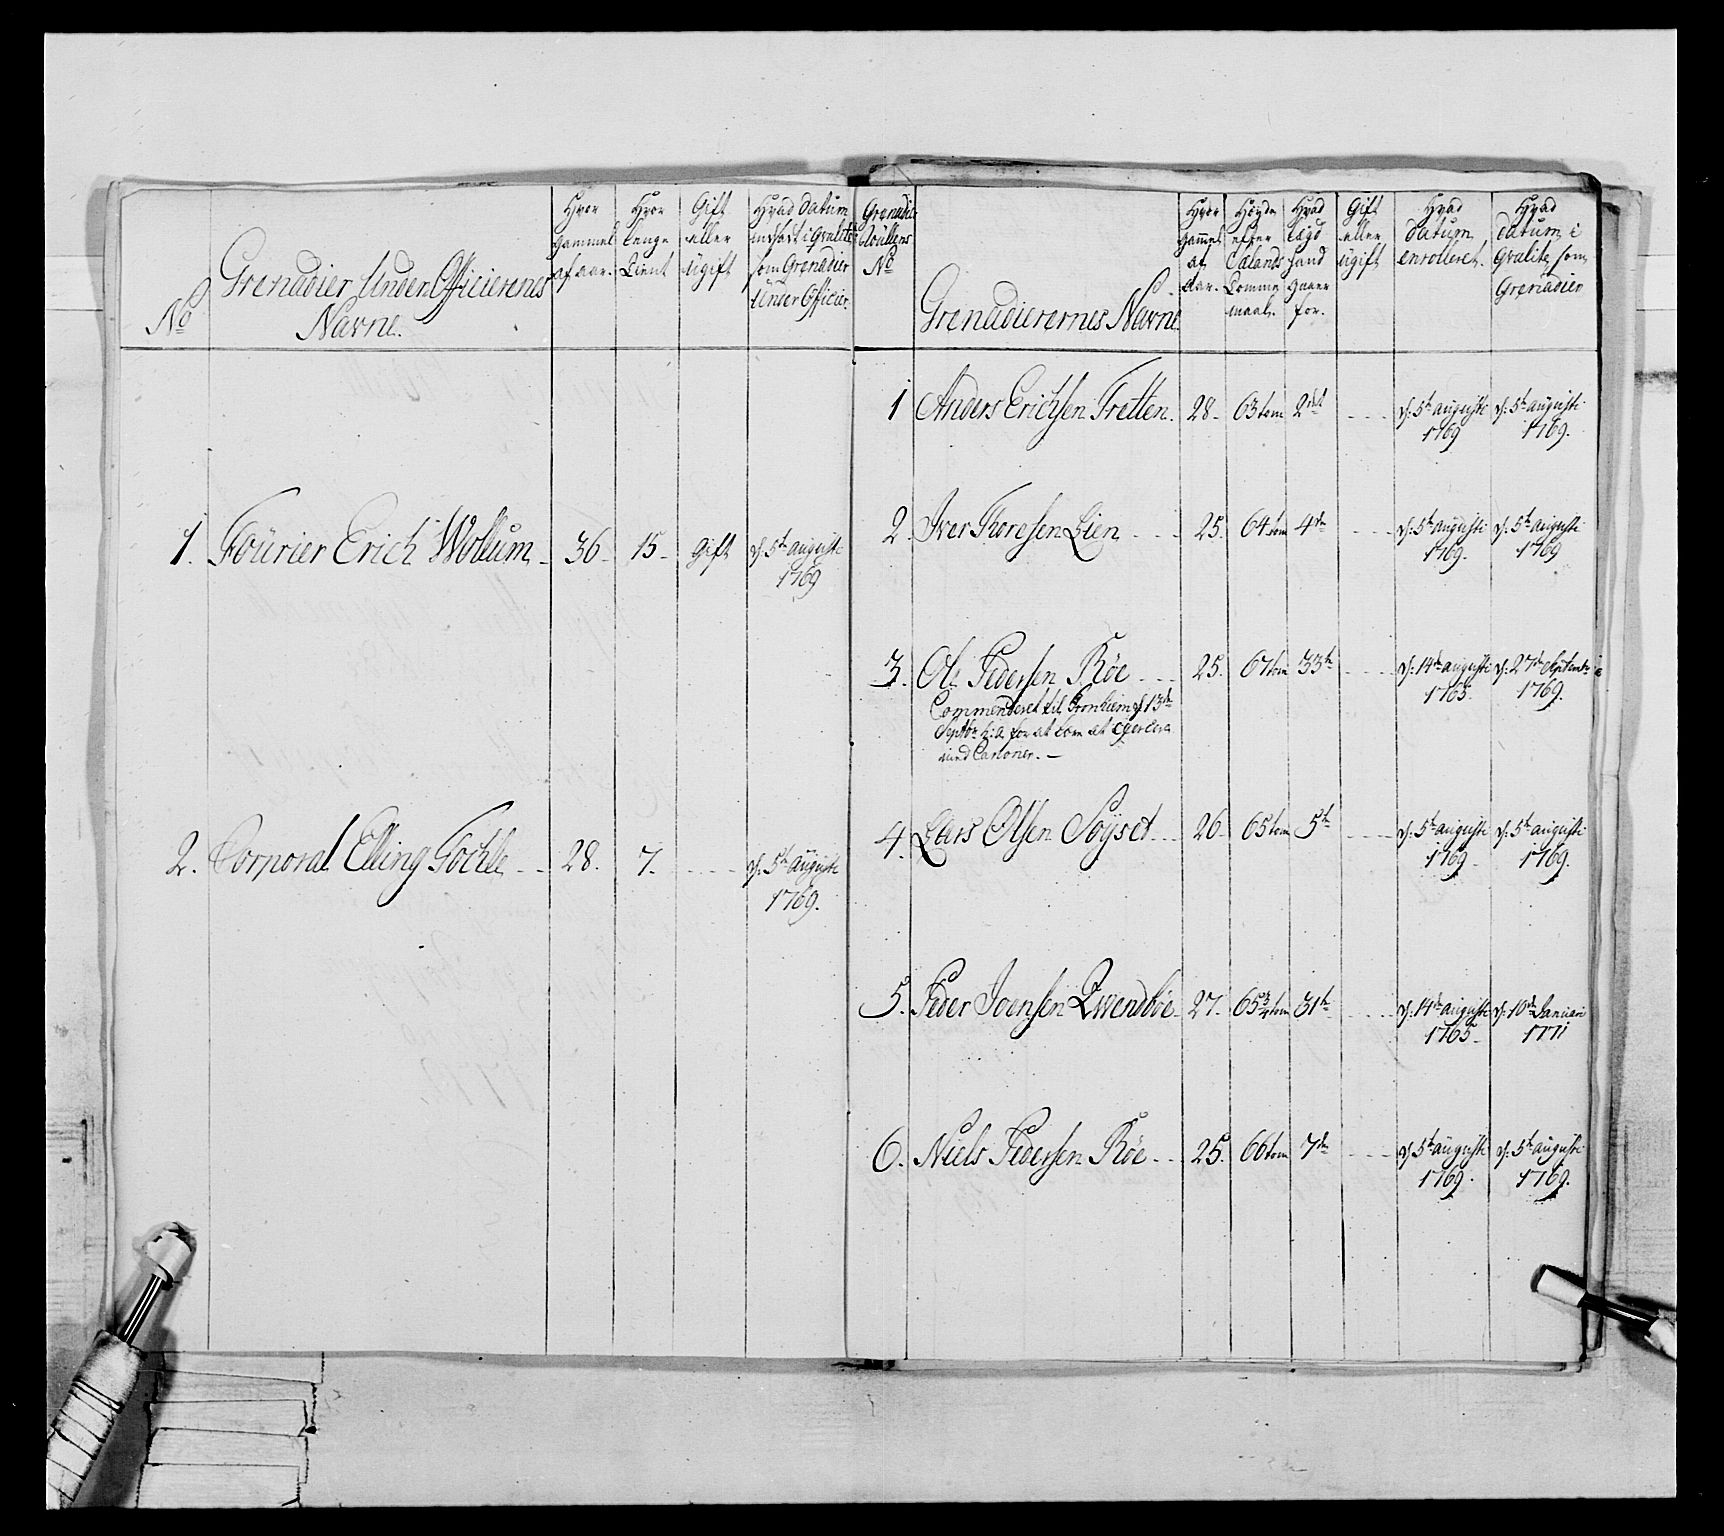 No
Grenadier Under Officierernes
Navne.
Hvor
gammel
af aar.
Hvor
lenge
tient
Gift
eller
ugift
Hvad datum
indsadt i Qvalite
som Grenadier
Under Officier.
1. Fourier Erich Wollum 36 15 gift d: 5te augusti
1769
2. Corporal Elling Fochle 28. 7. d: 5te augusti
1769.
Grenadier
Rullens
No
Grenadierernes Navne.
Hvor
gammel
af
Aar.
Höyde
efter
Sælands
Tomme
maal.
Hvad
Lægd
hand
staaer
for.
Gift
eller
ugift
Hvad
datum
enrolleret.
Hvad
datum i
Qvalite som
Grenadier
1 Anders Erichsen Tretten. 28. 63 tom 2det d: 5te augusti d: 5te augusti
1769 1769.
2. Iver Thoresen Lien 25. 64 tom 4de d: 5te augusti d: 5te augusti
1769. 1769
3. Ole Pedersen Röe 25. 67 tom 33te d: 14de augusti d: 27de Septembr
1765 1769.
Commenderet til Tronhiem d 13de
Septbr h: a. for at lære at exercere
med Canoner.
4. Lars Olsen Söyset 26 65 tom 5te d: 5te augusti d: 5te augusti
1769 1769.
5. Peder Joensen Qvendböe 27. 65 3/4 tom 31te d: 14de augusti d: 10de Januari
1765 1771
6. Niels Pedersen Röe 25. 66 tom 7de d 5te augusti d: 5te augusti
1769. 1769.